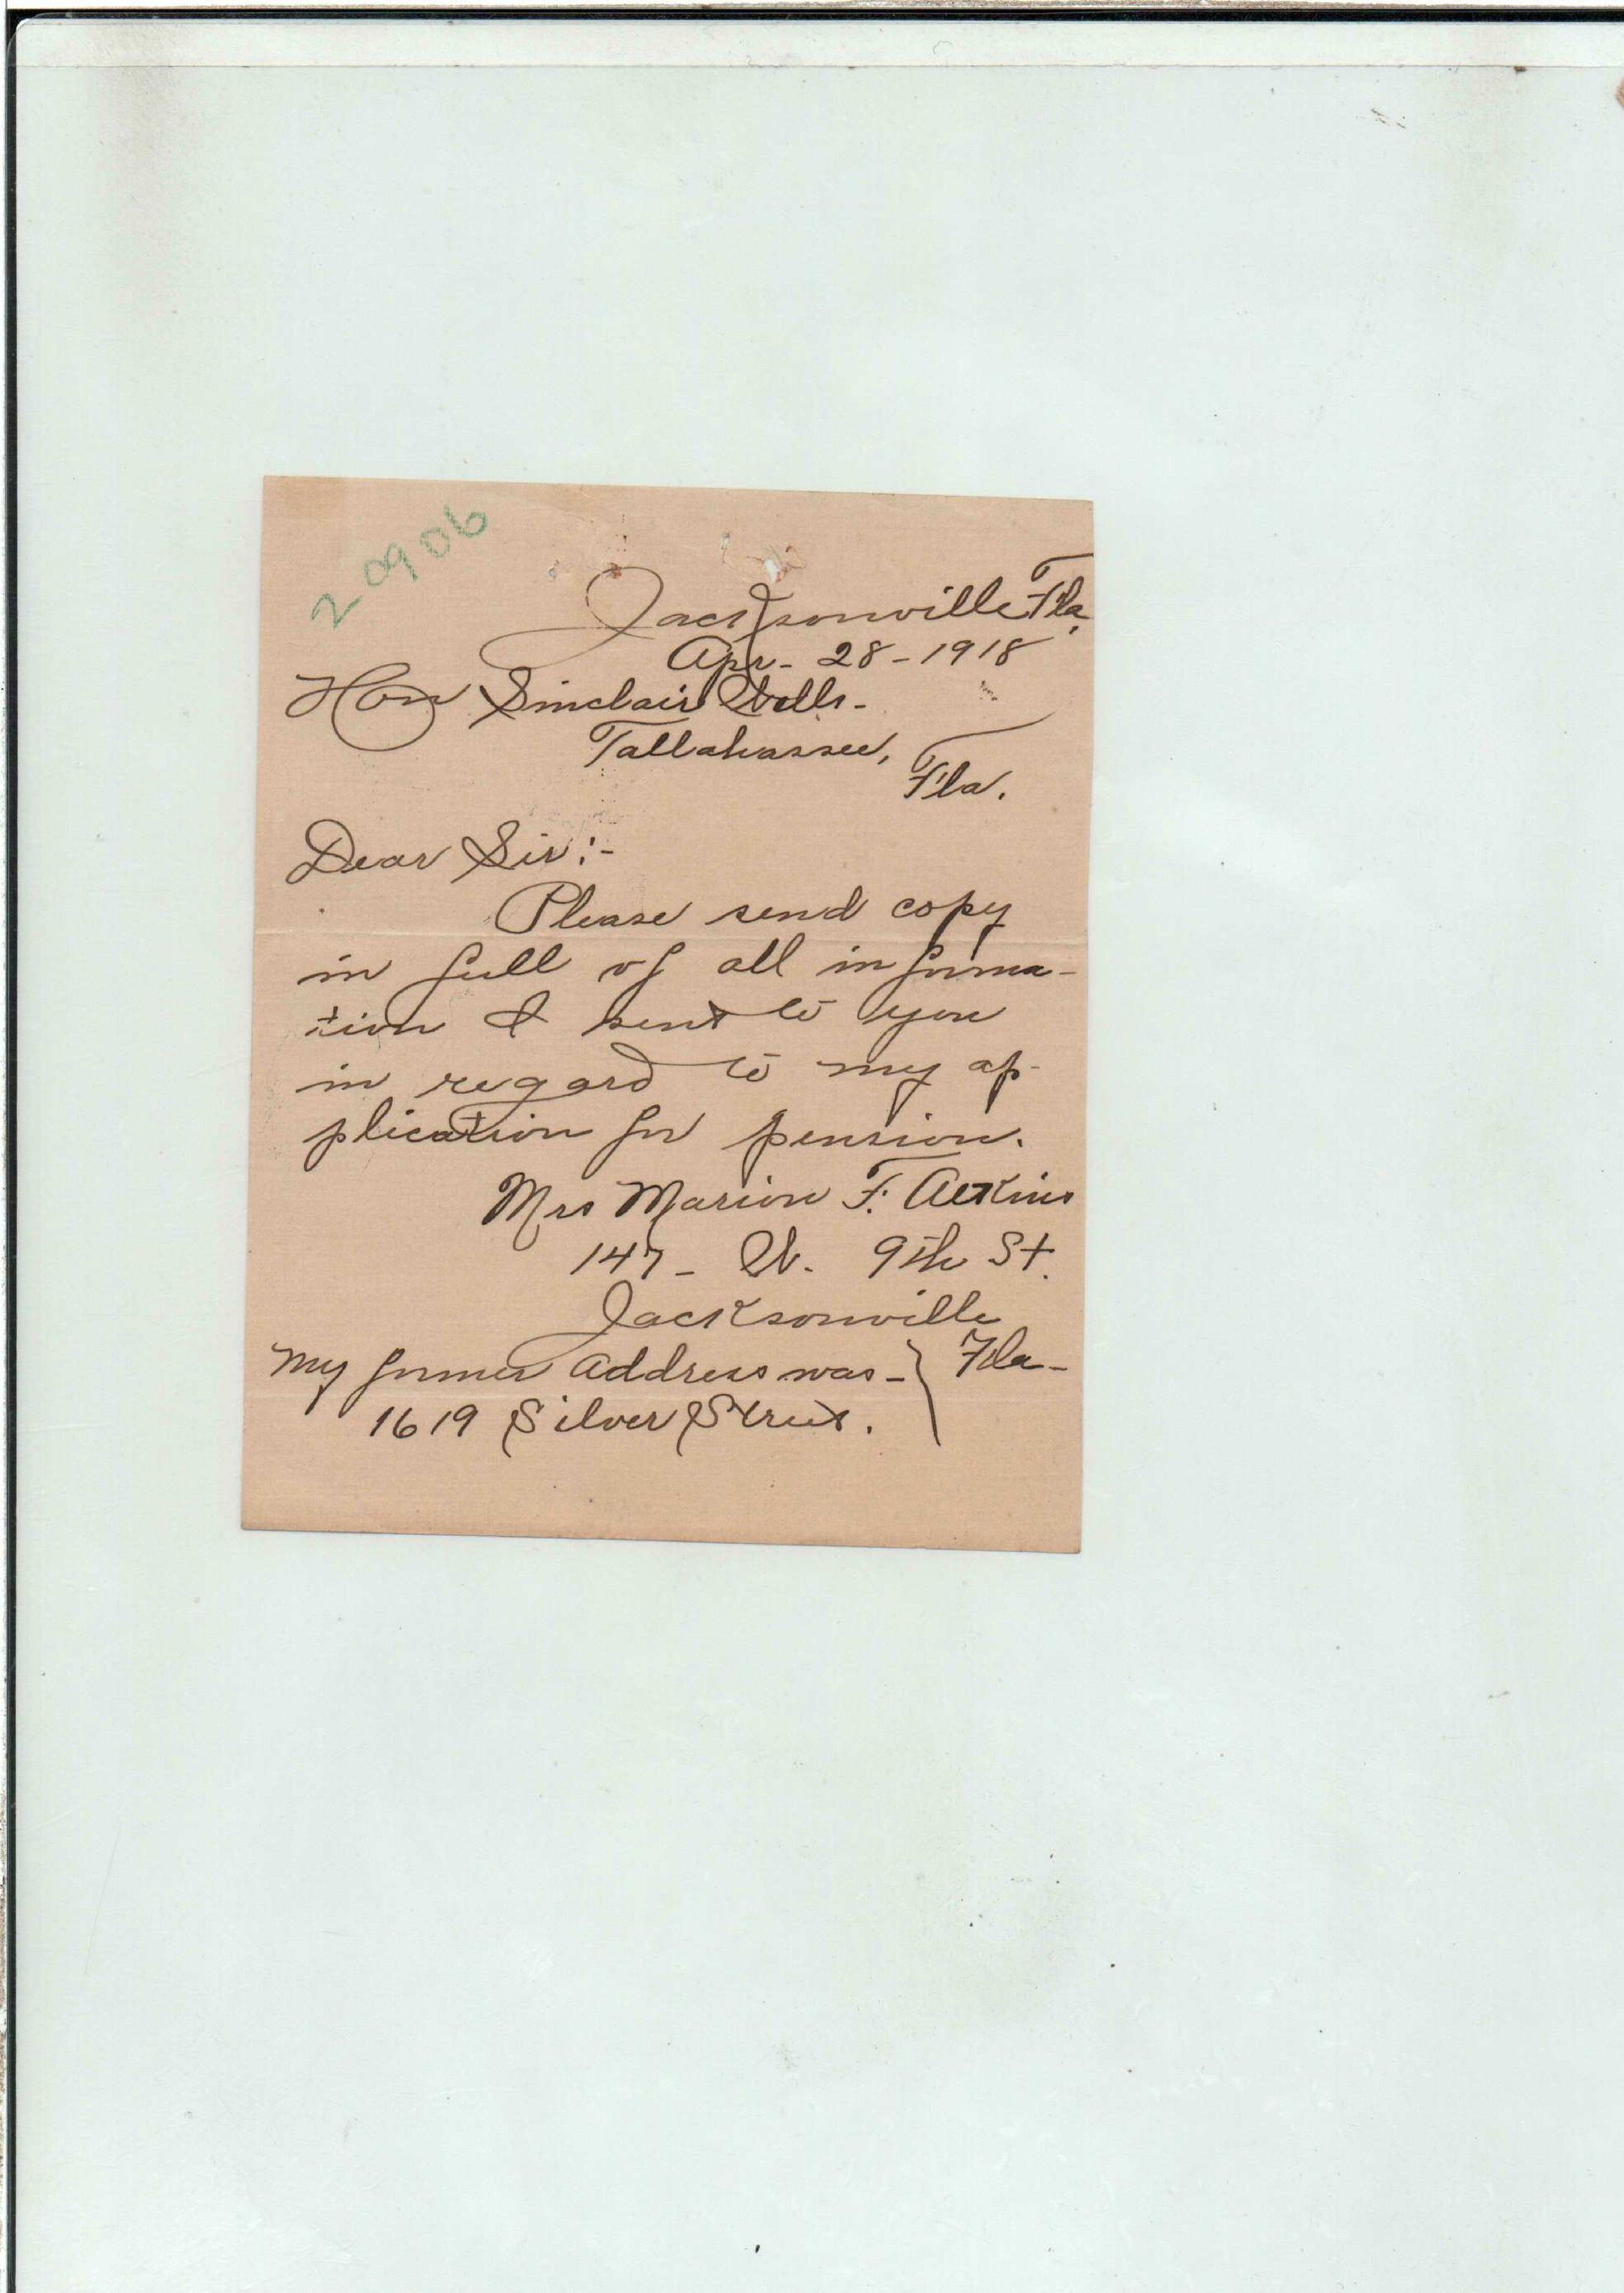 20906
Jacksonville Fla.
Apr - 28 - 1918
Hon Sinclair Wells -
Tallahassee,
Fla.
Dear Sir : -
Please send copy
in full of all informa-
tion I sent to you
in regard to my ap-
plication for pension.
Mrs Marion F. Aekins
147 - W. 9th St.
Jacksonville
Fla -
My former Address was -
1619 Silver Street.